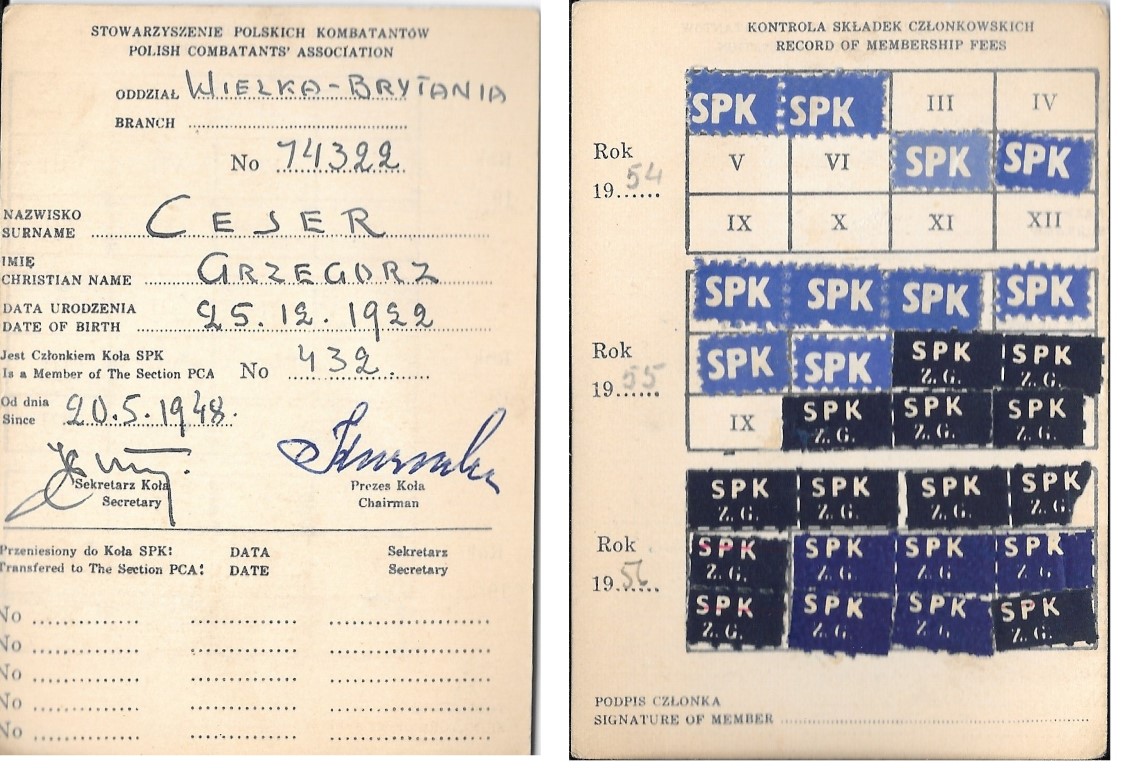 STOWARZYSZENIE POLSKICH KOMBATANTÓW
POLISH COMBATANTS' ASSOCIATION
ODDZIAŁ WIELKA-BRYTANIA
BRANCH
No 74322
NAZWISKO
SURNAME CESER
IMIĘ
CHRISTIAN NAME GRZEGORZ
DATA URODZENIA
DATE OF BIRTH 25.12.1922
Jest Członkiem Koła SPK
Is a Member of The Section PCA No 432.
Od dnia
Since 20.5.1948.
Sekretarz Koła Prezes Koła
Secretary Chairman
Przeniesiony do Koła SPK: DATA Sekretarz
Transfered to The Section PCA: DATE Secretary
No
No
No
No
No
KONTROLA SKŁADEK CZŁONKOWSKICH
RECORD OF MEMBERSHIP FEES
SPK SPK III IV
Rok
V VI SPK SPK
1954
IX X XI XII
SPK SPK SPK SPK
Rok
SPK SPK SPK Z. G. SPK Z. G.
1955
IX SPK Z. G. SPK Z. G. SPK Z. G.
SPK Z. G. SPK Z. G. SPK Z. G. SPK Z. G.
Rok
SPK Z. G. SPK Z. G. SPK Z. G. SPK Z. G.
1956
SPK Z. G. SPK Z. G. SPK Z. G. SPK Z. G.
PODPIS CZŁONKA
SIGNATURE OF MEMBER